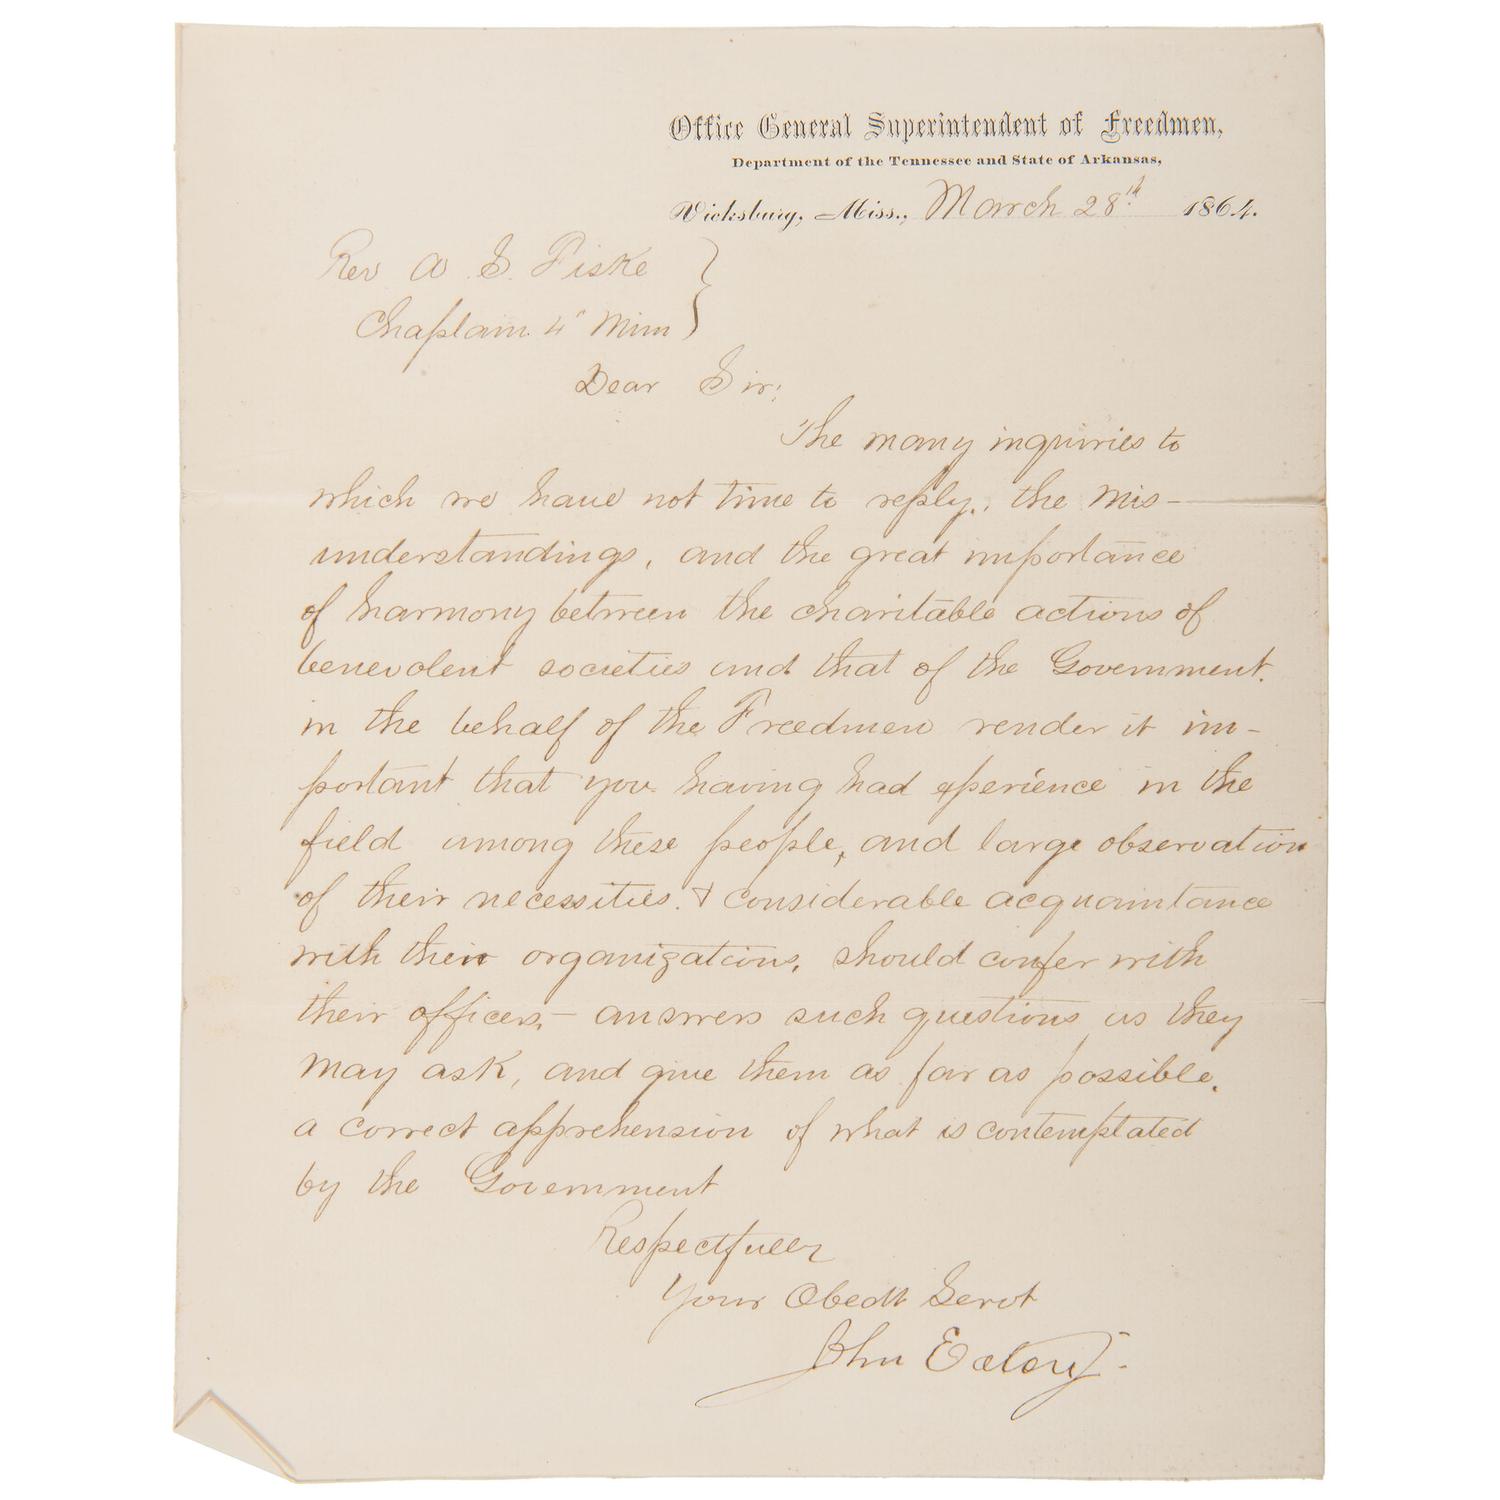 Office General Superintendent of Freedmen,
Department of the Tennessee and State of Arkansas,
Vicksburg, Miss., March 28th 1864.
Rev A S. Fiske
Chaplain 4" Minn
Dear Sir;
The many inquiries to
which we have not time to reply, the mis-
understandings, and the great importance
of harmony between the charitable actions of
benevolent societies and that of the Government.
in the behalf of the Freedmen render it im-
portant that you having had experience in the
field among these people, and large observation
of their necessities. & considerable acquaintance
with their organizations, should confer with
their officers,- answers such questions as they
may ask, and give them as far as possible.
a correct apprehension of what is contemplated
by the Government
Respectfully
Your Obedt Servt
John Eaton Jr.